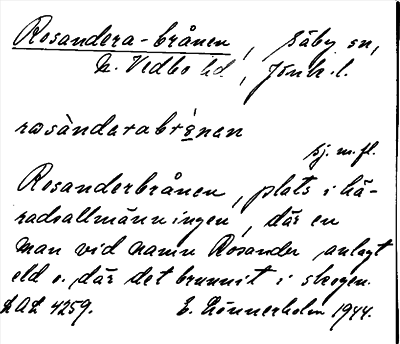 Rosandera-brånen, Säby sn,
N. Vedbo hd, Jönk. l.
rosàndarabrę̀nan
sj. m. fl.
Rosanderbrånen, plats i hä-
radsallmänningen, där en
man vid namn Rosander anlagt
eld o. där det brunnit i skogen.
LAL 4259. E. Lönnerholm 1944.